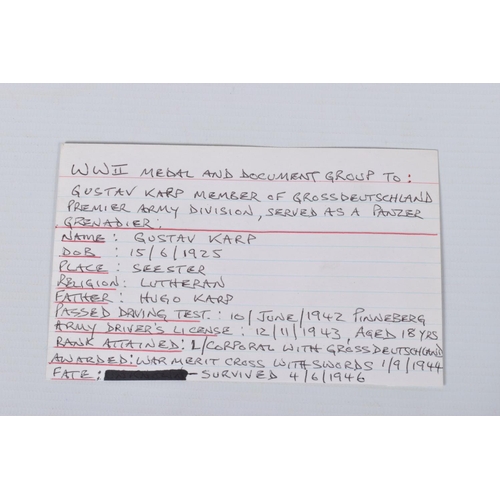 WWII MEDAL AND DOCUMENT GROUP TO:
GUSTAV KARP MEMBER OF GROSSDEUTSCHLAND
PREMIER ARMY DIVISION, SERVED AS A PANZER
GRENADIER.
NAME: GUSTAV KARP
DOB: 15/6/1925
PLACE: SEESTER
RELIGION: LUTHERAN
FATHER: HUGO KARP
PASSED DRIVING TEST: 10/JUNE/1942 PINNEBERG
ARMY DRIVER'S LICENSE: 12/11/1943, AGED 18 YRS
RANK ATTAINED: L/CORPORAL WITH GROSSDEUTSCHLAND
AWARDED: WAR MERIT CROSS WITH SWORDS 1/9/1944
FATE: SURVIVED 4/6/1946